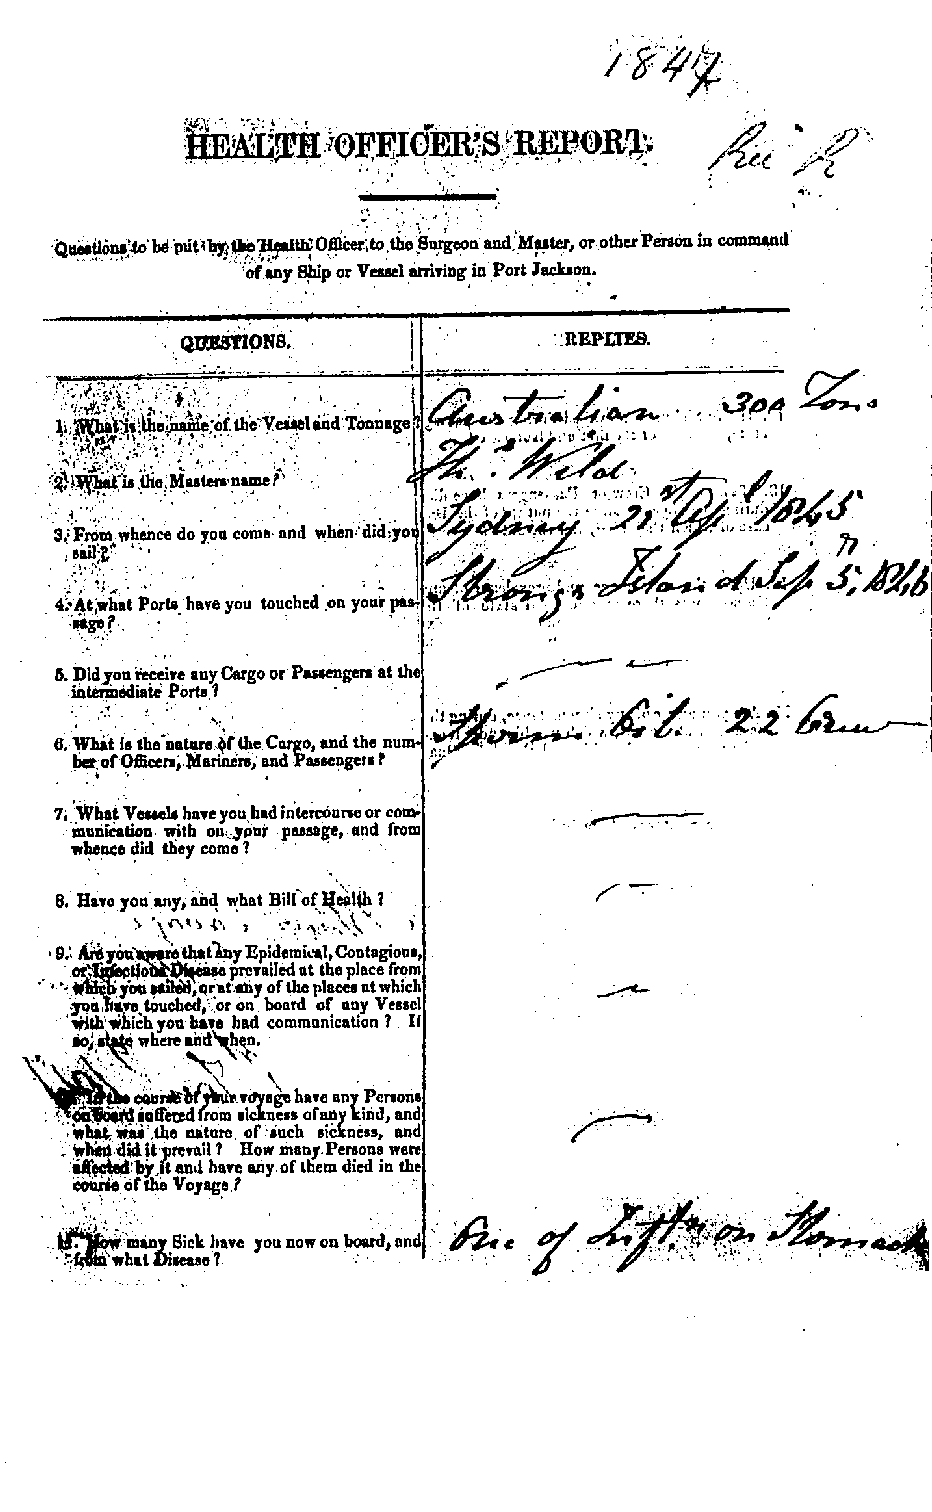 1847
HEALTH OFFICER'S REPORT.
Questions to be put by the Health Officer to the Surgeon and Master, or other Person in command
of any Ship or Vessel arriving in Port Jackson.
QUESTIONS.
REPLIES.
1. What is the name of the Vessel and Tonnage?
Australian 300 Tons
2. What is the Masters name?
Thos. Wild
3. From whence do you come and when did you
sail?
Sydney 21st Apl 1845
4. At what Ports have you touched on your pas-
sage?
Strongs Island Sep 5, 1846
5. Did you receive any Cargo or Passengers at the
intermediate Ports?
6. What is the nature of the Cargo, and the num-
ber of Officers, Mariners, and Passengers?
Sperm Oil. 22 Crew
7. What Vessels have you had intercourse or com-
munication with on your passage, and from
whence did they come?
8. Have you any, and what Bill of Health?
9. Are you aware that any Epidemical, Contagious,
or Infectious Disease prevailed at the place from
which you sailed, or at any of the places at which
you have touched, or on board of any Vessel
with which you have had communication? If
so, state where and when.
In the course of your voyage have any Persons
on board suffered from sickness of any kind, and
what was the nature of such sickness, and
when did it prevail? How many Persons were
affected by it and have any of them died in the
course of the Voyage?
11. How many Sick have you now on board, and
from what Disease?
One of on Stomach